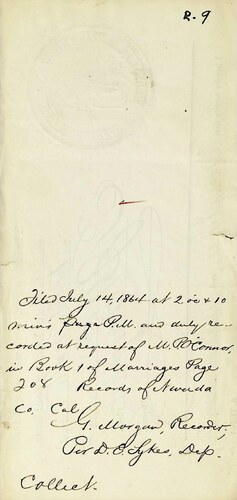 R. 9
Filed July 14, 1864 at 2 oc & 10
min's P.M. and duly re-
corded at request of M. O'Connor,
in Book 1 of Marriages Page
208 Records of Nevada
Co. Cal
G. Morgan, Recorder,
Per D. O. Sykes, Dep.
Collect.